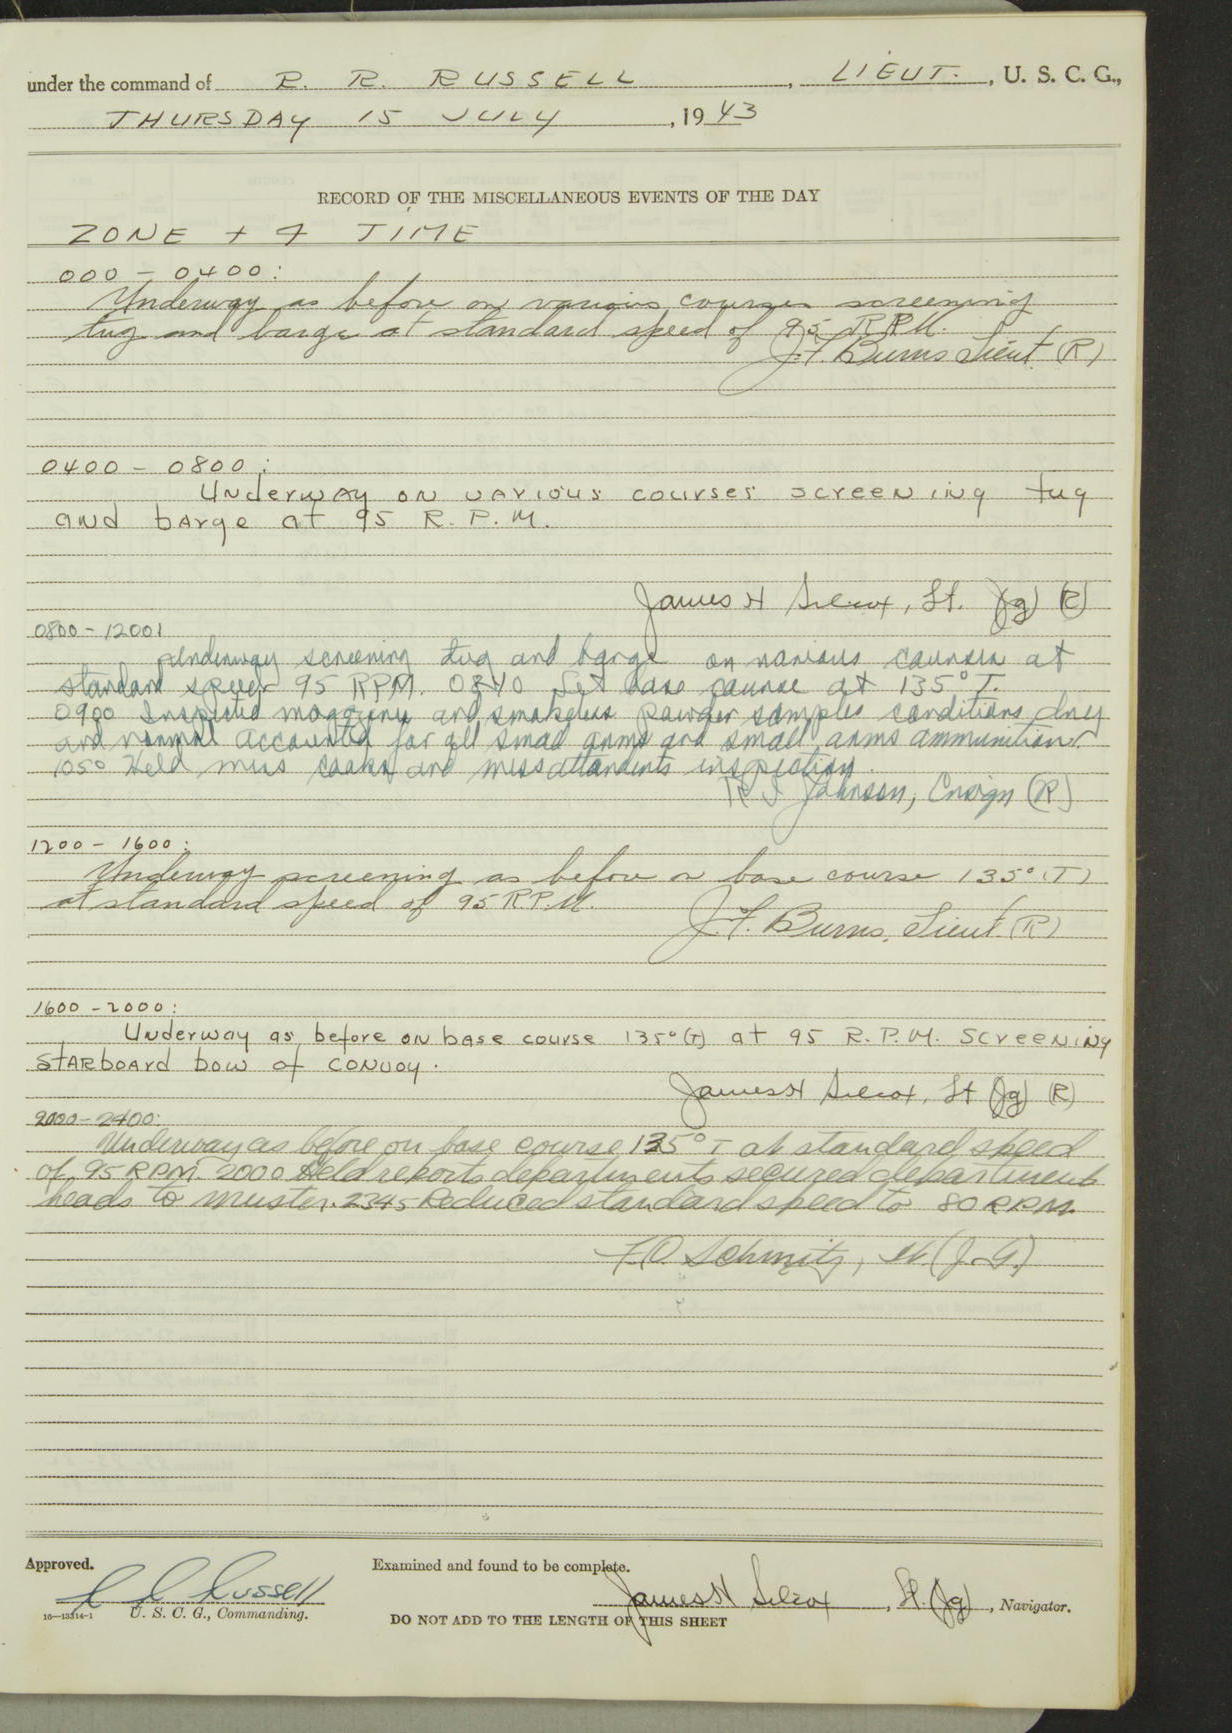 under the command of R. R. RUSSELL, LIEUT., U. S. C. G.,
THURSDAY 15 JULY, 1943
RECORD OF THE MISCELLANEOUS EVENTS OF THE DAY
ZONE + 4 TIME
000 - 0400:
Underway as before on various courses screening
tug and barge at standard speed of 95 RPM.
J.F. Burns Lieut (R)
0400 - 0800:
Underway on various courses screening tug
and barge at 95 R.P.M.
James H Silcox, Lt. (jg) (R)
0800-1200:
Underway screening tug and barge on various courses at
standard speed 95 RPM. 0840 Set base course at 135° T.
0900 Inspected magazines and smokeless powder samples conditions dry
and normal accounted for all small arms and small arms ammunition.
1050 Held mess cooks and mess attendents inspection.
R J Johnson, Ensign (R)
1200 - 1600:
Underway screening as before on base course 135° (T)
at standard speed of 95 R.P.M.
J.F. Burns, Lieut. (R)
1600 - 2000:
Underway as before on base course 135° (T) at 95 R.P.M. screening
starboard bow of convoy.
James H Silcox, Lt (Jg) (R)
2000-2400:
Underway as before on base course 135° T at standard speed
of 95 RPM. 2000 Held reports departments secured department
heads to muster. 2345 Reduced standard speed to 80 RPM.
F.O. Schmitz, Lt. (J.G.)
Approved.
Examined and found to be complete.
R R Russell
James H Silcox, Lt. (Jg), Navigator.
16—13314-1 U. S. C. G., Commanding.
DO NOT ADD TO THE LENGTH OF THIS SHEET